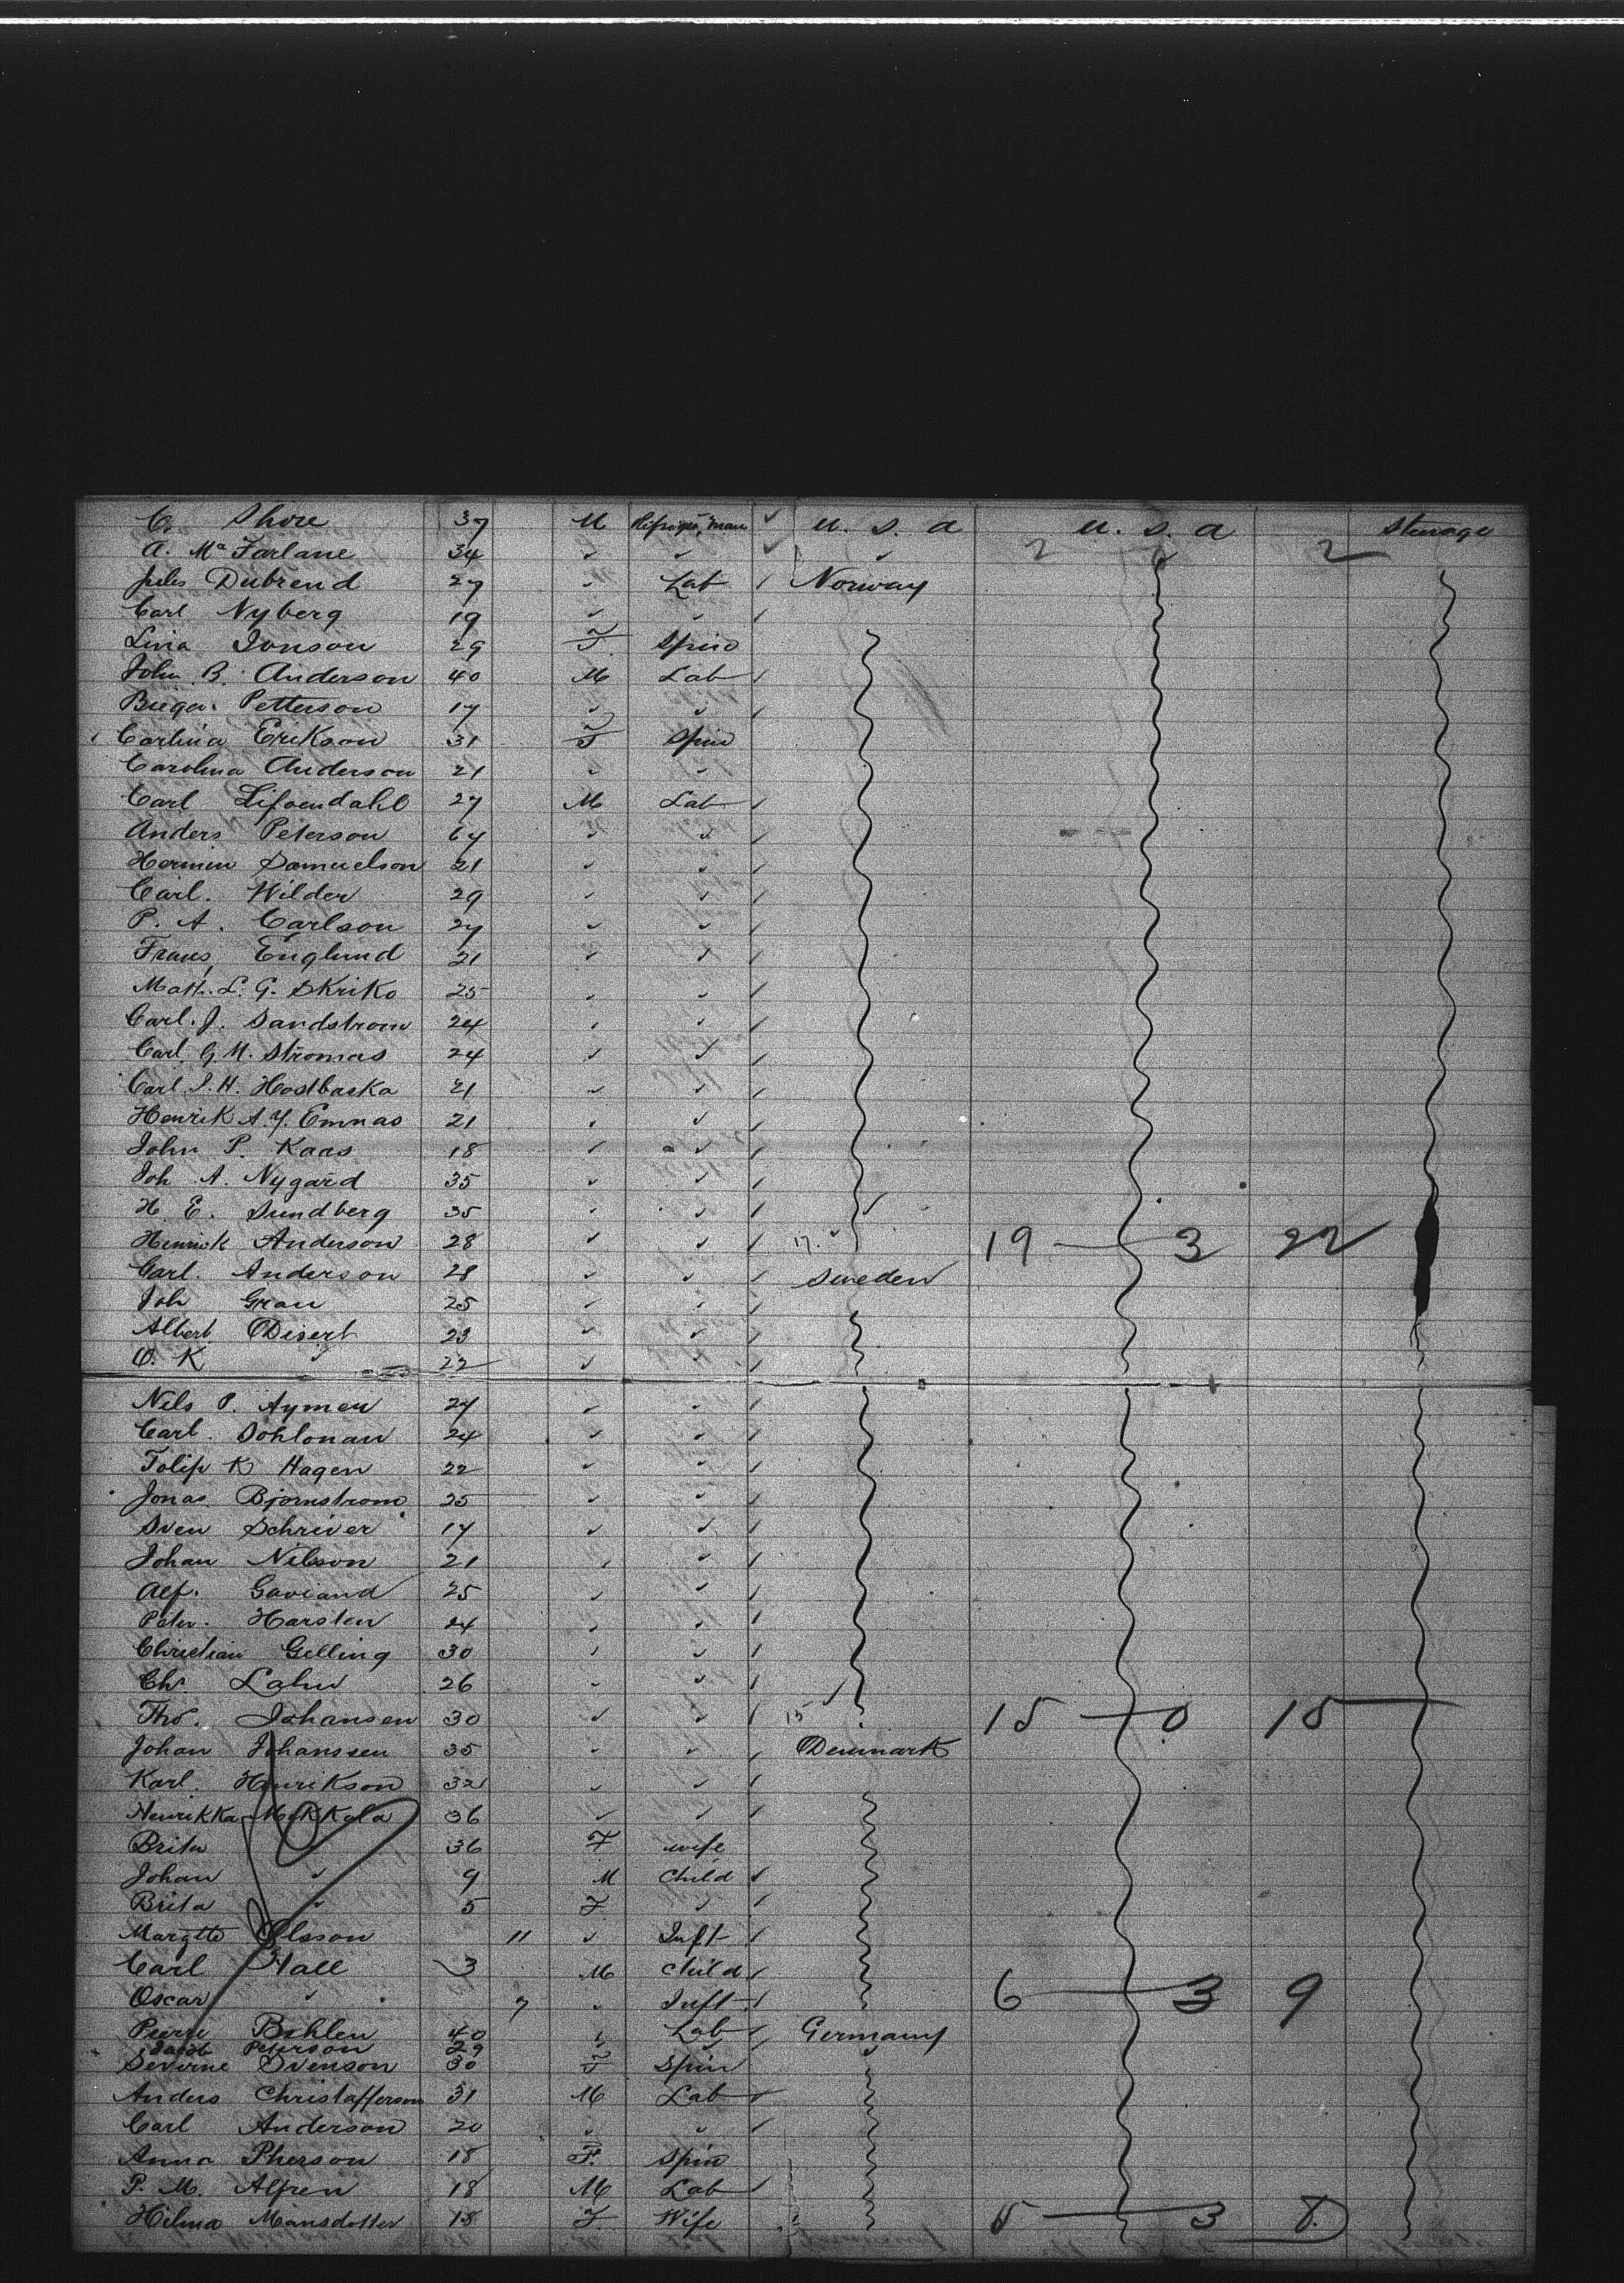 C. Shore 37 M Refriger. man ✓ U. S. A U. S. A Steerage
A. McFarlane 34 ✓ ✓ ✓ ✓ 2 2
Jules Dubrend 27 ✓ Lab / Norway
Carl Nyberg 19 ✓ ✓ /
Lina Jonson 29 F Spin
John B. Anderson 40 M Lab /
Petterson 17 ✓ ✓ /
Carlina Erikson 31 F Spin
Carolina Anderson 21 ✓ ✓
Carl Lifvendahl 27 M Lab /
Anders Peterson 64 ✓ ✓ /
Hermin Samuelson 21 ✓ ✓ /
Carl. Wilder 29 ✓ ✓ /
P. A. Carlson 27 ✓ ✓ /
Frans Englund 21 ✓ ✓ /
Matt. L. G. Skriko 25 ✓ ✓ /
Carl. J. Sandstrom 24 ✓ ✓ /
Carl G M. Stromas 24 ✓ ✓ /
Carl J. H. Hostbacka 21 ✓ ✓ /
Henrik A. Y. Emnas 21 ✓ ✓ /
John P. Kaas 18 ✓ ✓ /
Joh A. Nygård 35 ✓ ✓ /
H E. Sundberg 35 ✓ ✓ /
Henrick Anderson 28 ✓ ✓ / 17. 19 3 22
Carl. Anderson 28 ✓ ✓ / Sweden
Joh Gran 25 ✓ ✓ /
Albert Disert 23 ✓ ✓ /
O. K ✓ 22 ✓ ✓ /
Nils P. Aymen 24 ✓ ✓ /
Carl. Sohlonan 24 ✓ ✓ /
Tolip K Hagen 22 ✓ ✓ /
Jonas. Bjornstrom 25 ✓ ✓ /
Sven Schriver 17 ✓ ✓ /
Johan Nilsson 21 ✓ ✓ /
Alf. Gaviand 25 ✓ ✓ /
Peter. Harsten 24 ✓ ✓ /
Christian Gelling 30 ✓ ✓ /
Chr. Lahn 26 ✓ ✓ /
Tho. Johansen 30 ✓ ✓ / 15 15 0 15
Johan Johanssen 35 ✓ ✓ / Denmark
Karl. Henrikson 32 ✓ ✓ /
Henrikka Makkala 36 ✓ ✓ /
Brita 36 F wife
Johan ✓ 9 M Child /
Brita ✓ 5 F ✓ /
Margtte Olsson 11 ✓ Inft /
Carl Hall 3 M Child /
Oscar ✓ 7 ✓ Inft / 6 3 9
Pierre Bohlen 40 ✓ Lab / Germany
Jacob Peterson 29 ✓ ✓
Severne Svenson 30 F Spin
Anders Christafferson 31 M Lab /
Carl Anderson 20 ✓ ✓ /
Anna Pherson 18 F. Spin
P. M. Alfren 18 M Lab /
Hilma Mansdotter 18 F Wife 5 3 8